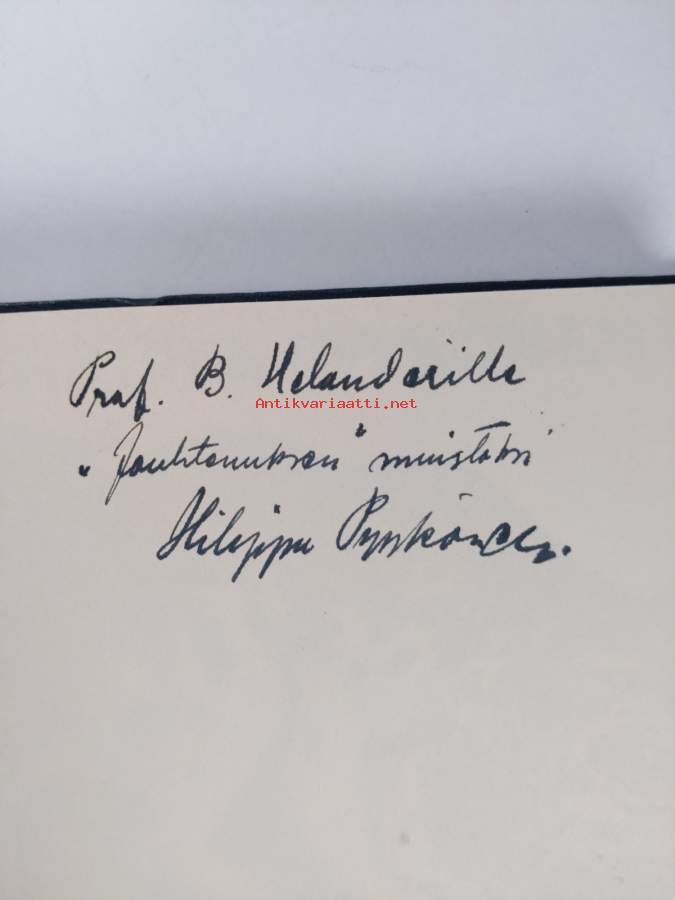 Prof. B. Helanderille
Antikvariaatti.net
"Jouhtenuksen" muistoksi
Hilippa Pyykönen.